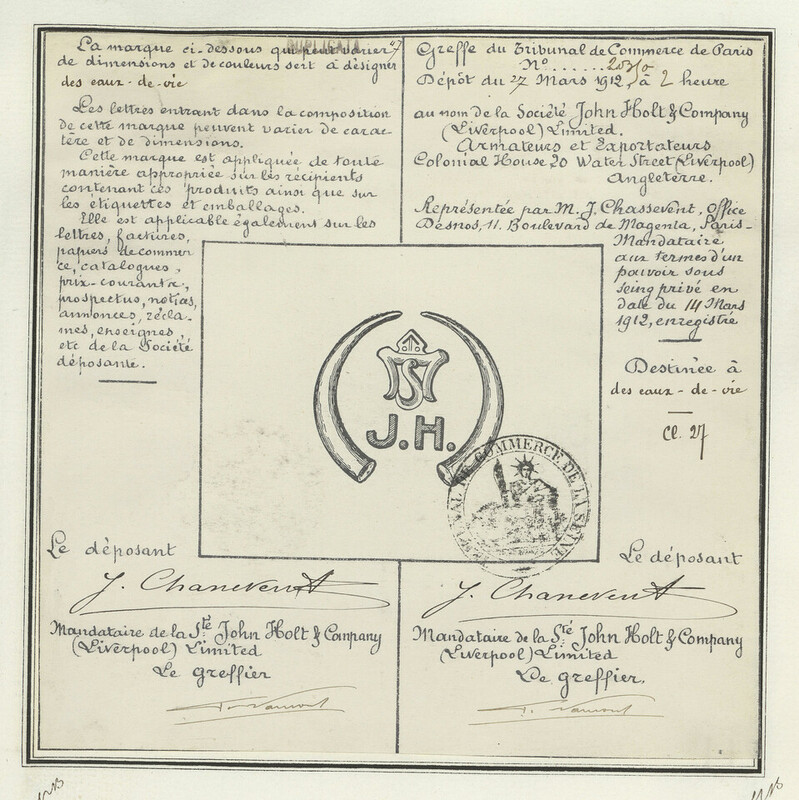 La marque ci-dessous qui peut varier
de dimensions et de couleurs sert à désigner
des eaux-de-vie
Les lettres entrant dans la composition
de cette marque peuvent varier de carac-
tère et de dimensions.
Cette marque est appliquée de toute
manière appropriée sur les récipients
contenant ces produits ainsi que sur
les étiquettes et emballages.
Elle est applicable également sur les
lettres, factures,
papiers de commer
ce, catalogues,
prix-courants,
prospectus, notices,
annonces, récla-
mes, enseignes,
etc de la Société
déposante.
DUPLICATA
Greffe du Tribunal de Commerce de Paris
N°......
Dépôt du 27 Mars 1912, à 2 heure
au nom de la Société John Holt & Company
(Liverpool) Limited.
Armateurs et Exportateurs
Colonial House 20 Water Street (Liverpool)
Angleterre.
Représentée par M. J. Chassevent, Office
Desnos, 11. Boulevard de Magenta, Paris-
Mandataire
aux termes d'un
pouvoir sous
seing privé en
date du 14 Mars
1912, enregistré
Destinée à
des eaux-de-vie
Cl. 27
J.H.
TRIBUNAL DE COMMERCE DE LA SEINE
Le déposant
J. Chassevent
Mandataire de la Sté John Holt & Company
(Liverpool) Limited
Le greffier
Le déposant
J. Chassevent
Mandataire de la Sté John Holt & Company
(Liverpool) Limited
Le greffier.